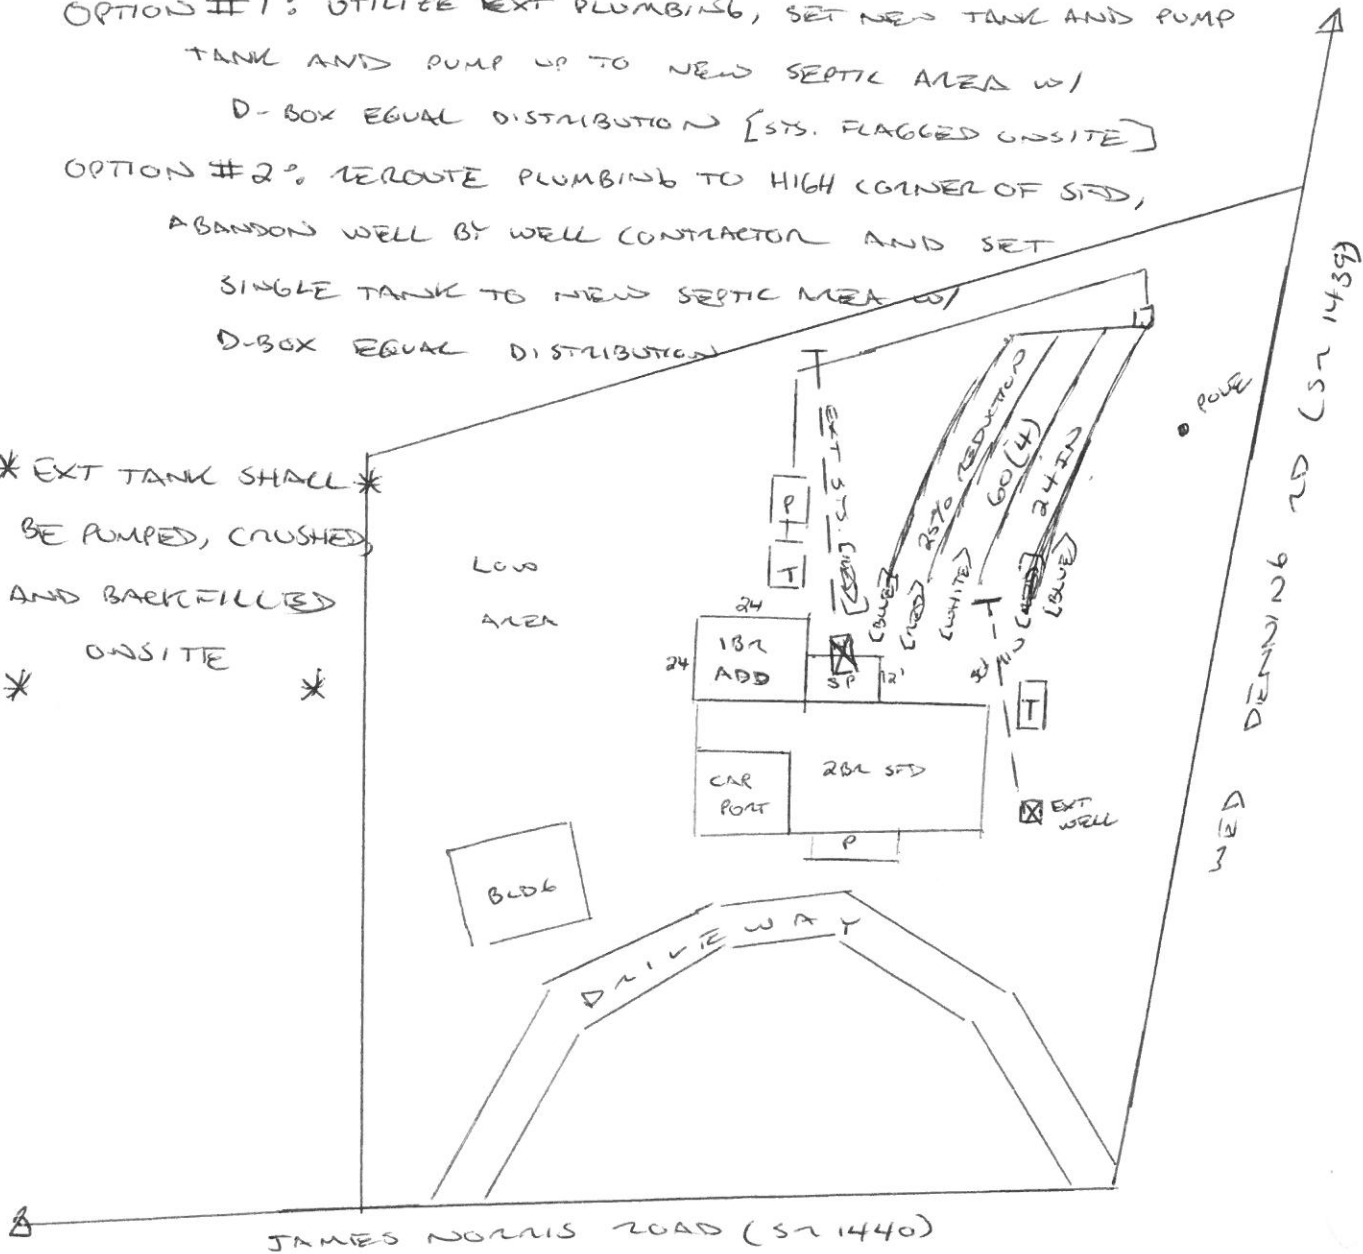 OPTION #1: UTILIZE EXT PLUMBING, SET NEW TANK AND PUMP
TANK AND PUMP UP TO NEW SEPTIC AREA W/
D-BOX EQUAL DISTRIBUTION [SYS. FLAGGED ONSITE]
OPTION #2: REROUTE PLUMBING TO HIGH CORNER OF SFD,
ABANDON WELL BY WELL CONTRACTOR AND SET
SINGLE TANK TO NEW SEPTIC AREA W/
D-BOX EQUAL DISTRIBUTION
* EXT TANK SHALL *
BE PUMPED, CRUSHED,
AND BACKFILLED
ONSITE
* *
LOW
AREA
P
T
EXT SYS.
25% REDUCTION
60(4)
24 IN
[BLUE]
[RED]
[WHITE]
[RED]
[BLUE]
POLE
24
24
1BR
ADD
SP
12'
T
T
2BR SFD
CAR
PORT
P
EXT
WELL
BLDG
DRIVEWAY
JAMES NORRIS ROAD (SR 1440)
RD (SR 1439)